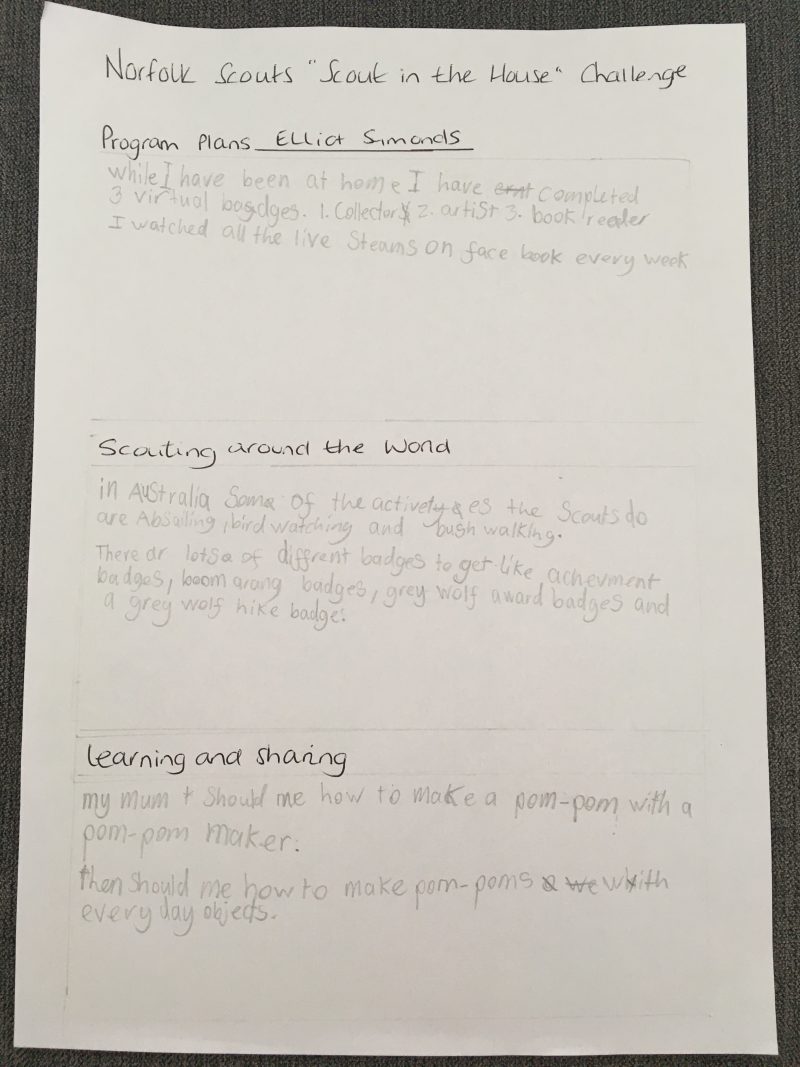 Norfolk Scouts "Scout in the House" Challenge
Program Plans Elliot Simonds
while I have been at home I have completed
3 virtual basdges. 1. Collector 2. artist 3. book reader
I watched all the live Steams on face book every week
Scouting around the World
in Australia Some of the activety es the Scouts do
are Absailing, bird watching and bush walking.
There ar lots of diffrent badges to get like achevment
badges, boomarang badges, grey wolf award badges and
a grey wolf hike badge.
Learning and sharing
my mum should me how to make a pom-pom with a
pom-pom maker.
then should me how to make pom-poms we with
every day objects.